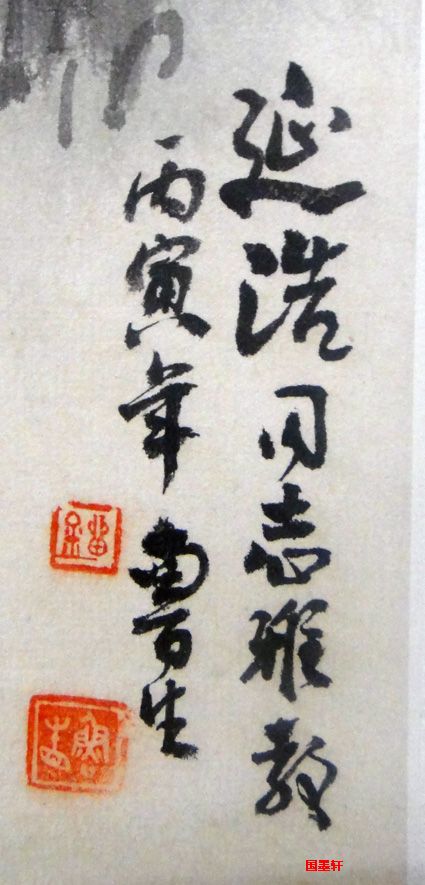 延浩同志雅教
丙寅年鲁百生
国墨轩